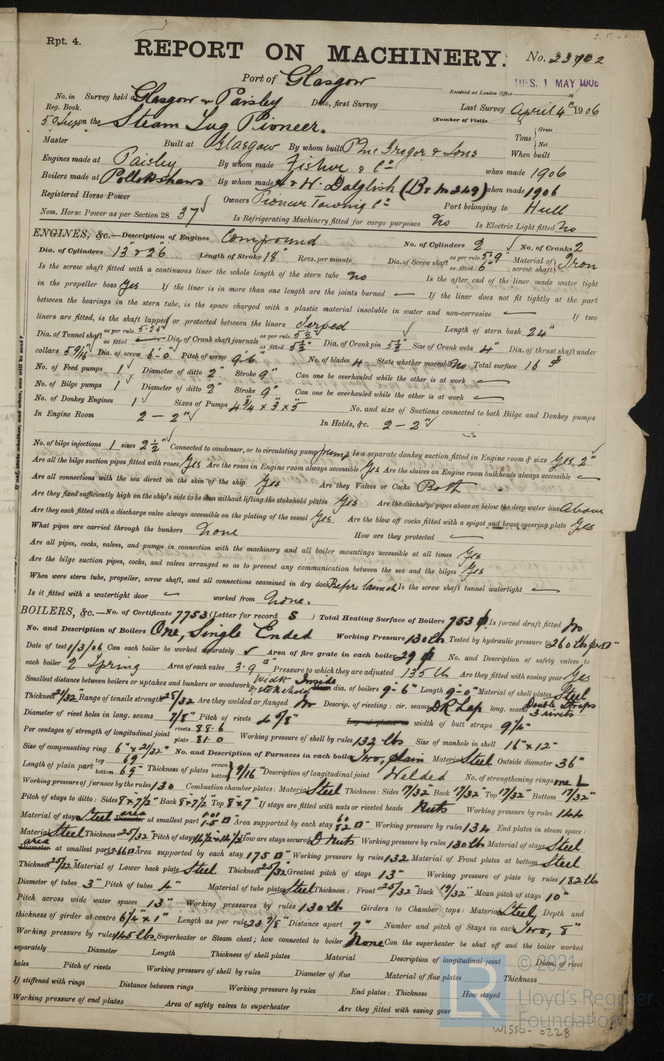 Rpt. 4.
REPORT ON MACHINERY.
No. 23702
Port of Glasgow
Received at London Office TUES. 1 MAY 1906
No. in Survey held at Glasgow & Paisley Date, first Survey Last Survey April 4th 1906
Reg. Book. (Number of Visits
50 Sup on the Steam Tug Pioneer. Tons { Gross Net
Master Built at Glasgow By whom built P. McGregor & Sons When built
Engines made at Paisley By whom made Fisher & Co when made 1906
Boilers made at Pollokshaws By whom made A & W. Dalglish (Br No 249) when made 1906
Registered Horse Power Owners Pioneer Towing Co Port belonging to Hull
Nom. Horse Power as per Section 28 37 Is Refrigerating Machinery fitted for cargo purposes No Is Electric Light fitted No
ENGINES, &c.—Description of Engines Compound No. of Cylinders 2 No. of Cranks 2
Dia. of Cylinders 13" & 26" Length of Stroke 18" Revs. per minute Dia. of Screw shaft as per rule 5.9" as fitted 6" Material of screw shaft Iron
Is the screw shaft fitted with a continuous liner the whole length of the stern tube No Is the after end of the liner made water tight
in the propeller boss Yes If the liner is in more than one length are the joints burned — If the liner does not fit tightly at the part
between the bearings in the stern tube, is the space charged with a plastic material insoluble in water and non-corrosive — If two
liners are fitted, is the shaft lapped or protected between the liners Serped Length of stern bush 24"
Dia. of Tunnel shaft as per rule 5.25" as fitted — Dia. of Crank shaft journals as per rule 5½" as fitted 5¾" Dia. of Crank pin 5¾" Size of Crank webs 4" Dia. of thrust shaft under
collars 5 9/16" Dia. of screw 6'-0" Pitch of screw 9'-6" No. of blades 4 State whether moveable No Total surface 16
No. of Feed pumps 1 Diameter of ditto 2" Stroke 9" Can one be overhauled while the other is at work —
No. of Bilge pumps 1 Diameter of ditto 2" Stroke 9" Can one be overhauled while the other is at work —
No. of Donkey Engines 1 Sizes of Pumps 4¾" x 3" x 5" No. and size of Suctions connected to both Bilge and Donkey pumps
In Engine Room 2 - 2" In Holds, &c. 2 - 2"
No. of bilge injections 1 sizes 2½" Connected to condenser, or to circulating pump pump Is a separate donkey suction fitted in Engine room & size Yes, 2"
Are all the bilge suction pipes fitted with roses Yes Are the roses in Engine room always accessible Yes Are the sluices on Engine room bulkheads always accessible —
Are all connections with the sea direct on the skin of the ship Yes Are they Valves or Cocks Both
Are they fixed sufficiently high on the ship's side to be seen without lifting the stokehold plates Yes Are the discharge pipes above or below the deep water line Above
Are they each fitted with a discharge valve always accessible on the plating of the vessel Yes Are the blow off cocks fitted with a spigot and brass covering plate Yes
What pipes are carried through the bunkers None How are they protected —
Are all pipes, cocks, valves, and pumps in connection with the machinery and all boiler mountings accessible at all times Yes
Are the bilge suction pipes, cocks, and valves arranged so as to prevent any communication between the sea and the bilges Yes
When were stern tube, propeller, screw shaft, and all connections examined in dry dock Before launch Is the screw shaft tunnel watertight —
Is it fitted with a watertight door — worked from None.
BOILERS, &c.—No. of Certificate 7753 (Letter for record S) Total Heating Surface of Boilers 753 Is forced draft fitted No
No. and Description of Boilers One, Single Ended Working Pressure 130 lbs Tested by hydraulic pressure to 260 lbs per □"
Date of test 1/3/06 Can each boiler be worked separately ✓ Area of fire grate in each boiler 29 No. and Description of safety valves to
each boiler 2 Spring Area of each valve 3.9 □" Pressure to which they are adjusted 135 lb Are they fitted with easing gear Yes
Smallest distance between boilers or uptakes and bunkers or woodwork Inside dia. of boilers 9'-6" Length 9'-0" Material of shell plates Steel
Thickness 21/32" Range of tensile strength 28/32 Are they welded or flanged No Descrip. of riveting: cir. seams DR Lap long. seams Double Straps 3 rivets
Diameter of rivet holes in long. seams 7/8" Pitch of rivets 4 5/8" width of butt straps 9¼"
Per centages of strength of longitudinal joint rivets 88.6 plate 81.0 Working pressure of shell by rules 132 lbs Size of manhole in shell 16" x 12"
Size of compensating ring 6" x 21/32" No. and Description of Furnaces in each boiler Two, plain Material Steel Outside diameter 36"
Length of plain part top 69" bottom 69" Thickness of plates crown bottom 9/16" Description of longitudinal joint Welded No. of strengthening rings one
Working pressure of furnace by the rules 130 Combustion chamber plates: Material Steel Thickness: Sides 17/32" Back 17/32" Top 17/32" Bottom 17/32"
Pitch of stays to ditto: Sides 8" x 7½" Back 8" x 7½" Top 8" x 7" If stays are fitted with nuts or riveted heads Nuts Working pressure by rules 144
Material of stays Steel area at smallest part Area supported by each stay 60 □" Working pressure by rules 134 End plates in steam space:
Material Steel Thickness 25/32 Pitch of stays How are stays secured D Nuts Working pressure by rules 130 lb Material of stays Steel
area at smallest part Area supported by each stay 175 □" Working pressure by rules 132 Material of Front plates at bottom Steel
Thickness 25/32 Material of Lower back plate Steel Thickness 25/32 Greatest pitch of stays 13" Working pressure of plate by rules 182 lb
Diameter of tubes 3" Pitch of tubes 4" Material of tube plates Steel Thickness: Front 25/32" Back 19/32" Mean pitch of stays 10"
Pitch across wide water spaces 13" Working pressures by rules 130 lb Girders to Chamber tops: Material Steel Depth and
thickness of girder at centre 6¼ x 1" Length as per rule 23 7/8" Distance apart 7" Number and pitch of Stays in each Two, 8"
Working pressure by rules 145 lbs Superheater or Steam chest; how connected to boiler None Can the superheater be shut off and the boiler worked
separately Diameter Length Thickness of shell plates Material Description of longitudinal joint Diam. of rivet
holes Pitch of rivets Working pressure of shell by rules Diameter of flue Material of flue plates Thickness
If stiffened with rings Distance between rings Working pressure by rules End plates: Thickness How stayed
Working pressure of end plates Area of safety valves to superheater Are they fitted with easing gear
© 2021
LR
Lloyd's Register
Foundation
W1550-0228